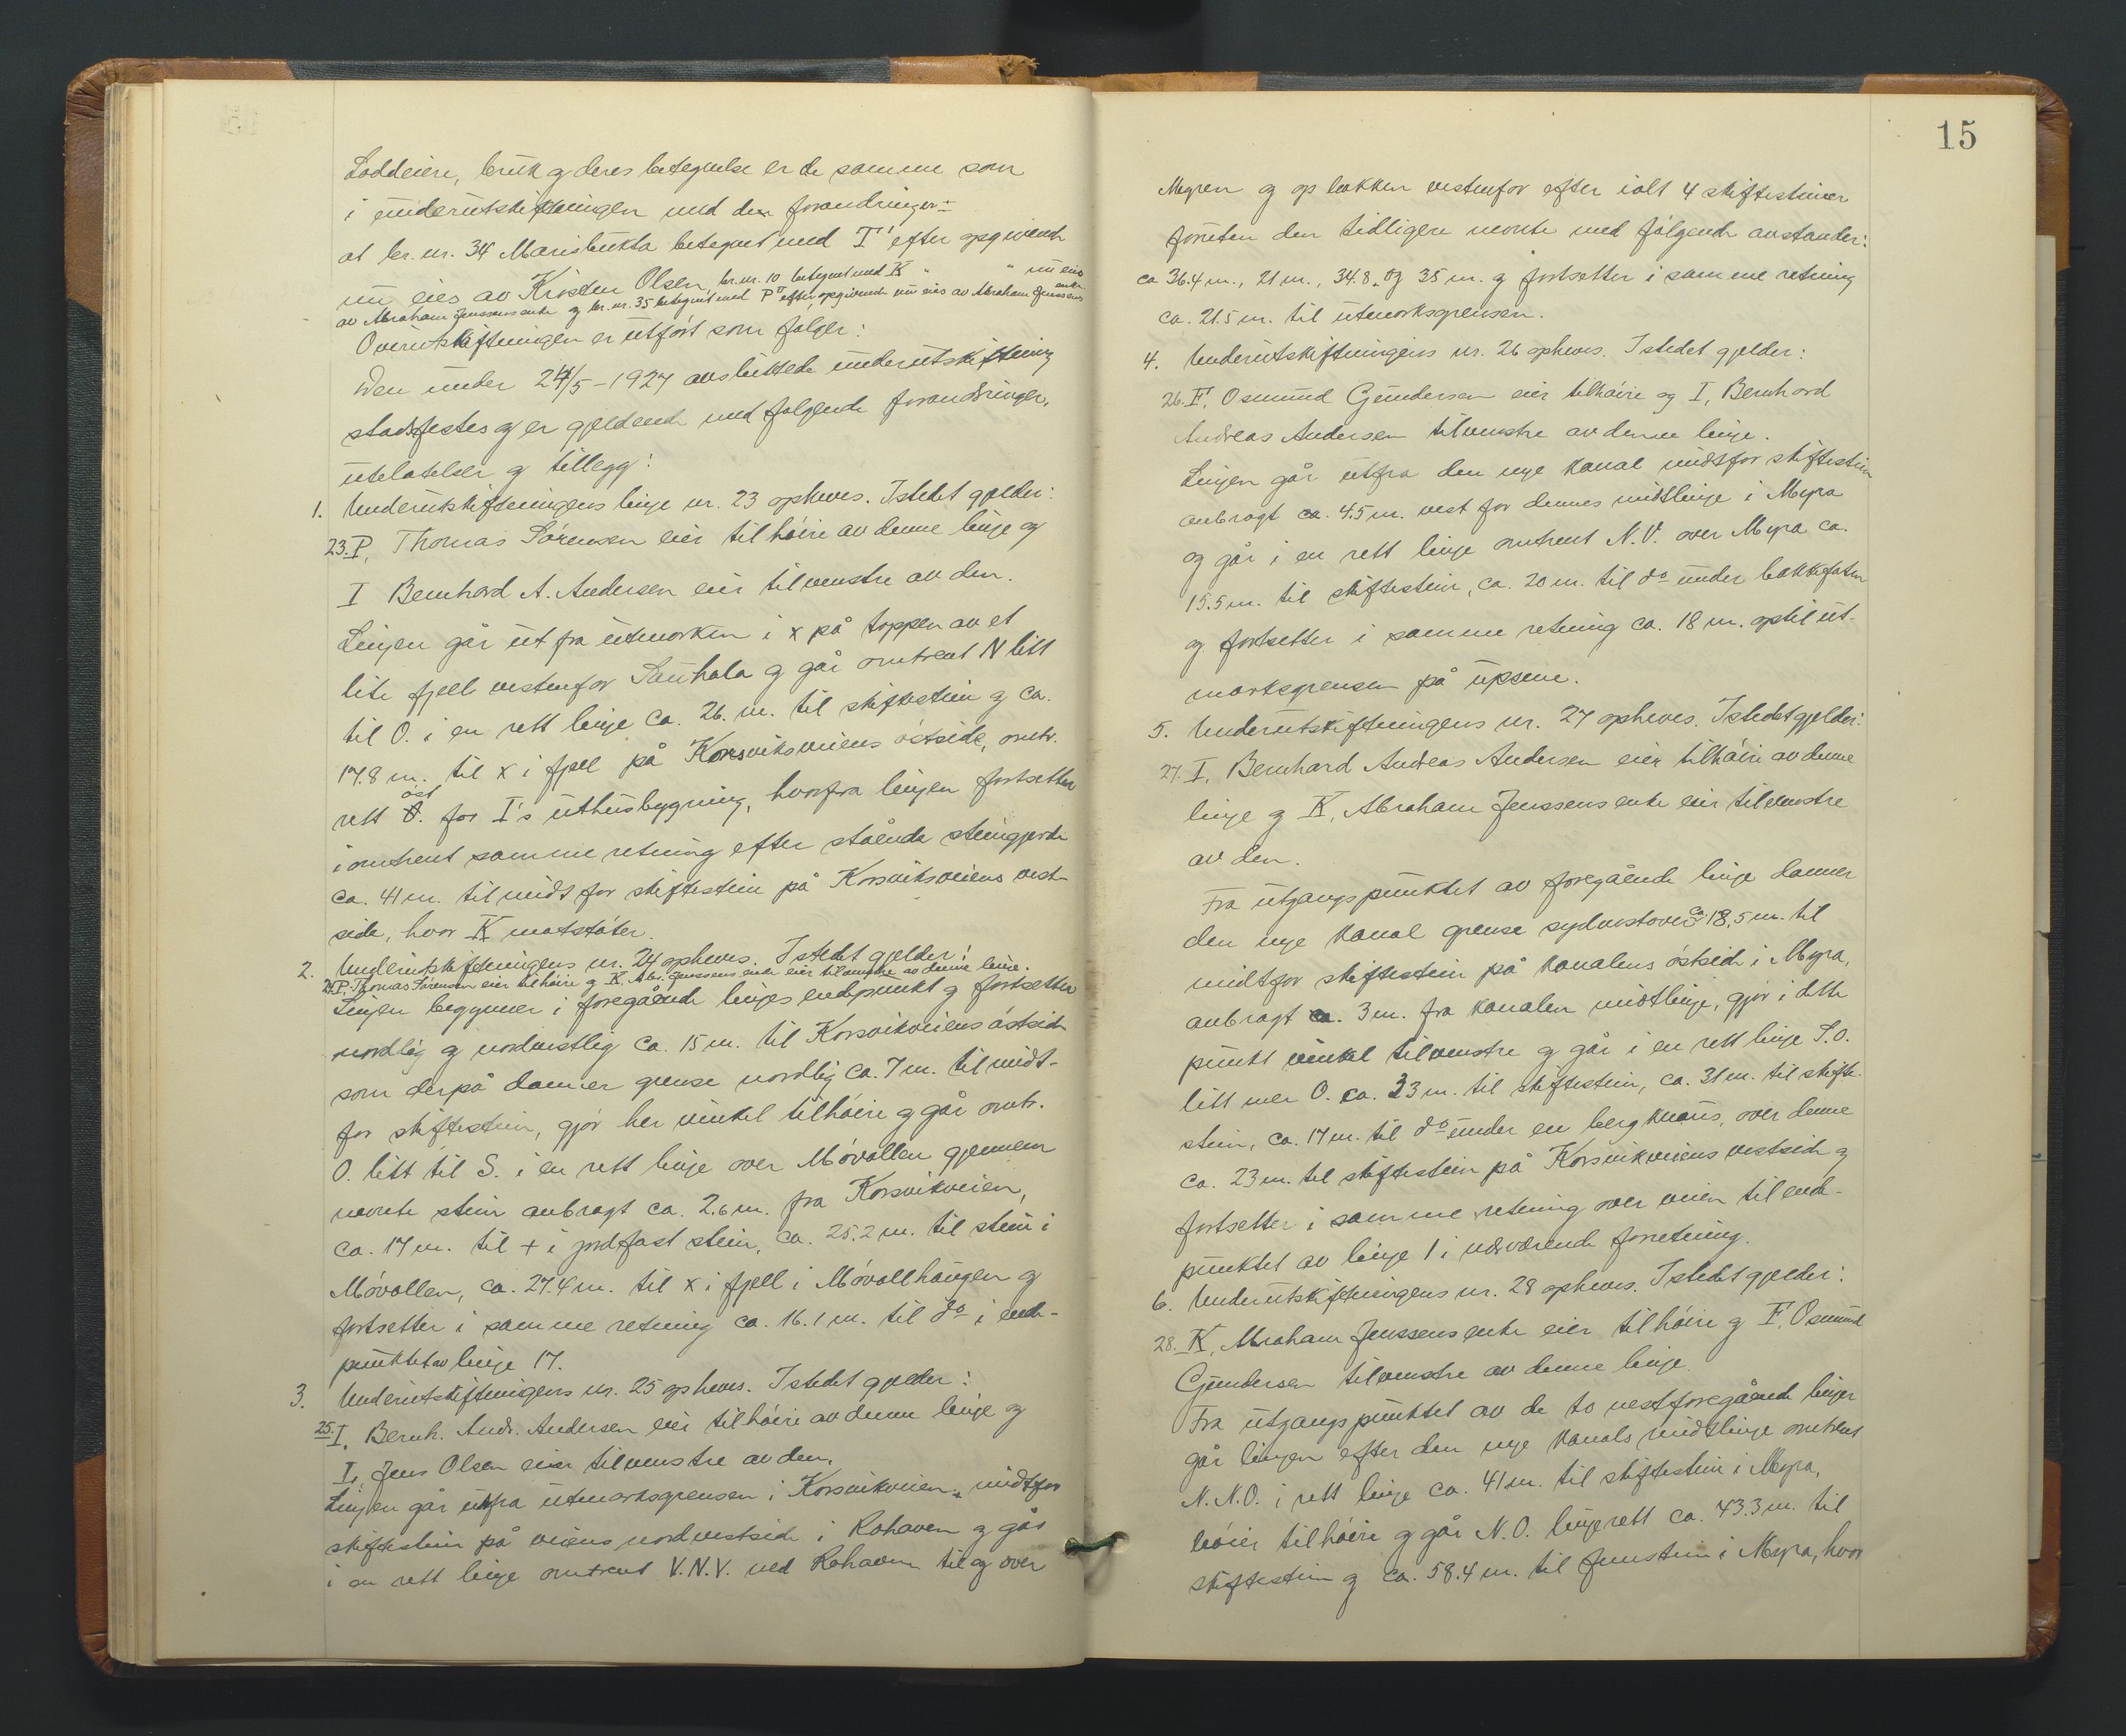 Loddeiere, bruk og deres betegnelse er de samme som
i underutskiftningen med den forandringer:
at br. nr. 34 Marisbukta betegnet med T' efter opgivende
nu eies av Kristen Olsen, br. nr. 10 betegnet med K " " nu eies
av Abraham Jenssens enke og br. nr. 35 betegnet med P" efter opgivende nu eies av Abraham Jenssens enke.
Overutskiftningen er utført som følger:
Den under 24/5-1927 avsluttede underutskiftning
stadfestes og er gjeldende med følgende forandringer,
utelatelser og tillegg:
1. Underutskiftningens linje nr. 23 opheves. Istedet gjelder:
23. P, Thomas Sørensen eier tilhøire av denne linje og
I Bernhard A. Andersen eier tilvenstre av den.
Linjen går ut fra utmarken i x på toppen av et
lite fjell vestenfor Sauhala og går omtrent N litt
til O. i en rett linje ca. 26. m. til skiftestein og ca.
17.8 m. til x i fjell på Korsviksveiens østside, omtr.
rett øst for I's uthusbygning, hvorfra linjen fortsetter
i omtrent samme retning efter stående steingjerde
ca. 41 m. til midt for skiftestein på Korsviksveiens vest-
side, hvor K motstøter.
2. Underutskiftningens nr. 24 opheves. Istedet gjelder:
24. P. Thomas Sørensen eier tilhøire og K. Abr. Jenssens enke eier tilvenstre av denne linje.
Linjen begynner i foregående linjes endepunkt og fortsetter
nordlig og nordvestlig ca. 15 m. til Korsvikveiens østside
som derpå danner grense nordlig ca. 7 m. til midt-
for skiftestein, gjør her vinkel tilhøire og går omtr.
O. litt til S. i en rett linje over Møvollen gjennem
nevnte stein anbragt ca. 2.6 m. fra Korsvikveien,
ca. 17 m. til + i jordfast stein, ca. 25.2 m. til stein i
Møvollen, ca. 27.4 m. til x i fjell i Møvollhaugen og
fortsetter i samme retning ca. 16.1 m. til do i ende-
punktet av linje 17.
3. Underutskiftningens nr. 25 opheves. Istedet gjelder:
25. I, Bernh. Andr. Andersen eier tilhøire av denne linje og
L, Jens Olsen eier tilvenstre av den.
Linjen går utfra utmarksgrensen i Korsvikveien, midtfor
skiftestein på veiens nordvestside i Rohaven og går
i en rett linje omtrent V.N.V. ved Rohaven til og over
15
Myren og op bakken vestenfor efter ialt 4 skiftesteiner
foruten den tidligere nevnte med følgende avstander:
ca 36.4 m., 21 m., 34.8 " og 35 m. og fortsetter i samme retning
ca. 21.5 m. til utmarksgrensen.
4. Underutskiftningens nr. 26 opheves. Istedet gjelder:
26. F, Osmund Gundersen eier tilhøire og I, Bernhard
Andreas Andersen tilvenstre av denne linje.
Linjen går utfra den nye kanal midtfor skiftestein
anbragt ca. 4.5 m. vest for dennes midtlinje i Myra
og går i en rett linje omtrent N.V. over Myra ca.
15.5 m. til skiftestein, ca. 20 m. til do under bakkefoten
og fortsetter i samme retning ca. 18 m. optil ut-
marksgrensen på upsene.
5. Underutskiftningens nr. 27 opheves. Istedet gjelder:
27. I, Bernhard Andreas Andersen eier tilhøire av denne
linje og K, Abraham Jenssens enke eier tilvenstre
av den.
Fra utgangspunktet av foregående linje danner
den nye kanal grense sydvestover ca. 18,5 m. til
midtfor skiftestein på kanalens østside i Myra,
anbragt ca. 3 m. fra kanalen midtlinje, gjør i dette
punkt vinkel tilvenstre og går i en rett linje S.O.
litt mer O. ca. 33 m. til skiftestein, ca. 31 m. til skifte-
stein, ca. 17 m. til do under en bergknaus, over denne
ca. 23 m. til skiftestein på Korsvikveiens vestside og
fortsetter i samme retning over veien til ende-
punktet av linje 1 i nærværende forretning.
6. Underutskiftningens nr. 28 opheves. Istedet gjelder:
28. K, Abraham Jenssens enke eier tilhøire og F, Osmund
Gundersen tilvenstre av denne linje.
Fra utgangspunktet av de to nestforegående linjer
går linjen efter den nye kanals midtlinje omtrent
N.N.O. i rett linje ca. 41 m. til skiftestein i Myra,
bøier tilhøire og går N.O. linjerett ca. 43.3 m. til
skiftestein og ca. 58.4 m. til femstein i Myra, hvor